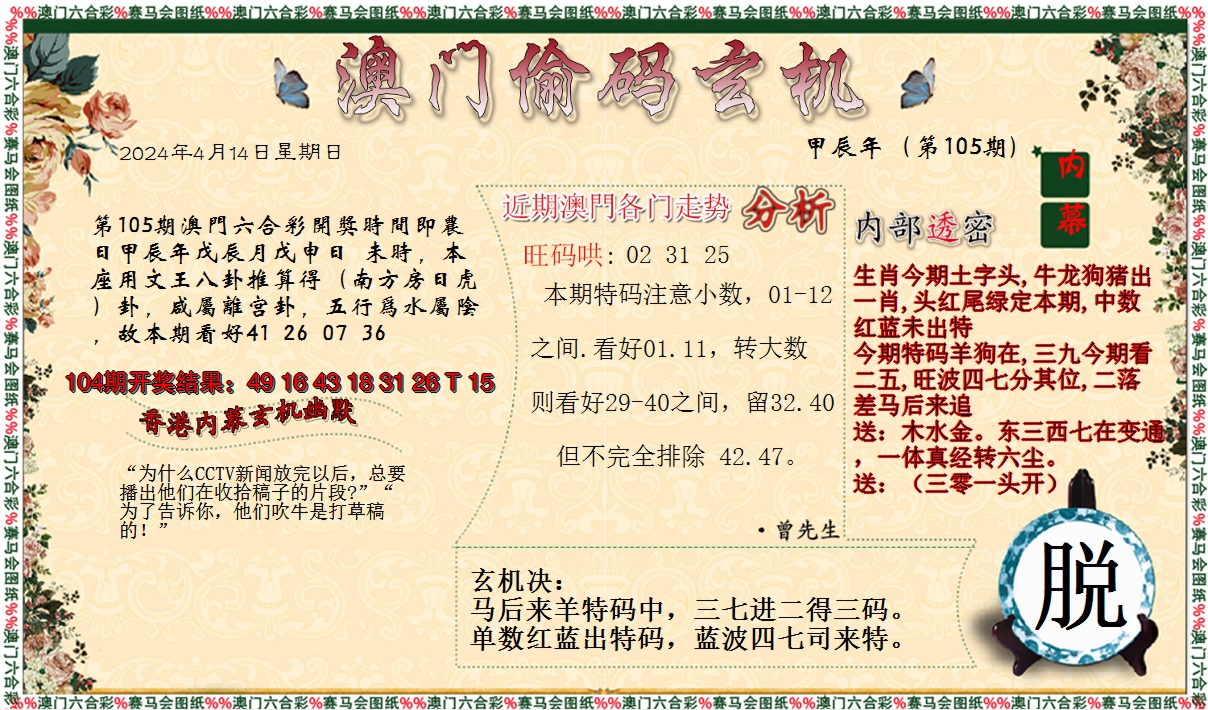 %%澳门六合彩%赛马会图纸%%澳门六合彩%赛马会图纸%%澳门六合彩%赛马会图纸%%澳门六合彩%赛马会图纸%%澳门六合彩%赛马会图纸%%澳门六合彩%赛马会图纸%%
澳门偷码玄机
2024年4月14日星期日
甲辰年（第105期）
内幕
第105期澳門六合彩開獎時間即農
日甲辰年戊辰月戊申日 未時，本
座用文王八卦推算得（南方房日虎
）卦，咸屬離宫卦，五行爲水屬陰
，故本期看好41 26 07 36
104期开奖结果：49 16 43 18 31 26 T 15
香港内幕玄机幽默
“为什么CCTV新闻放完以后，总要
播出他们在收拾稿子的片段?”“
为了告诉你，他们吹牛是打草稿
的！”
近期澳門各门走势 分析
旺码哄: 02 31 25
本期特码注意小数，01-12
之间.看好01.11，转大数
则看好29-40之间，留32.40
但不完全排除 42.47。
·曾先生
内部透密
生肖今期土字头,牛龙狗猪出
一肖,头红尾绿定本期,中数
红蓝未出特
今期特码羊狗在,三九今期看
二五,旺波四七分其位,二落
差马后来追
送：木水金。东三西七在变通
，一体真经转六尘。
送：（三零一头开）
玄机决:
马后来羊特码中，三七进二得三码。
单数红蓝出特码，蓝波四七司来特。
脱
%%澳门六合彩%赛马会图纸%%澳门六合彩%赛马会图纸%%澳门六合彩%赛马会图纸%%澳门六合彩%赛马会图纸%%澳门六合彩%赛马会图纸%%澳门六合彩%赛马会图纸%%